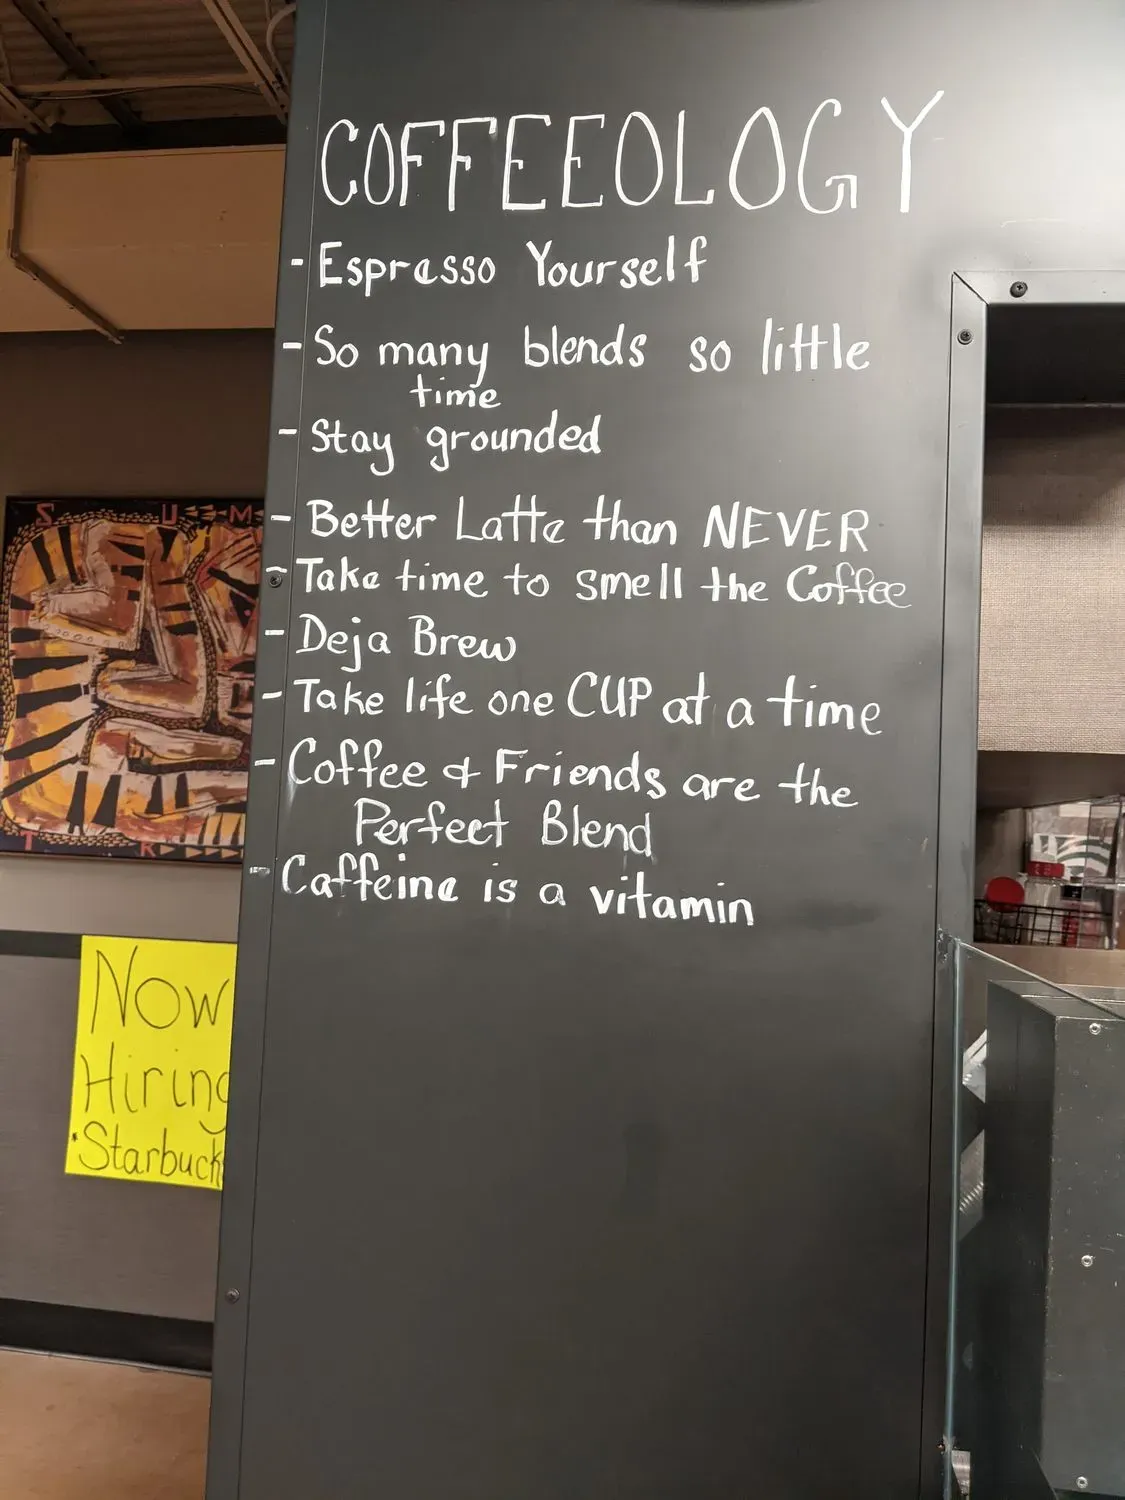 COFFEEOLOGY
- Espresso Yourself
- So many blends so little
time
- Stay grounded
- Better Latte than NEVER
- Take time to smell the Coffee
- Deja Brew
- Take life one CUP at a time
- Coffee & Friends are the
Perfect Blend
- Caffeine is a vitamin
S U M
T R
Now
Hiring
*Starbucks